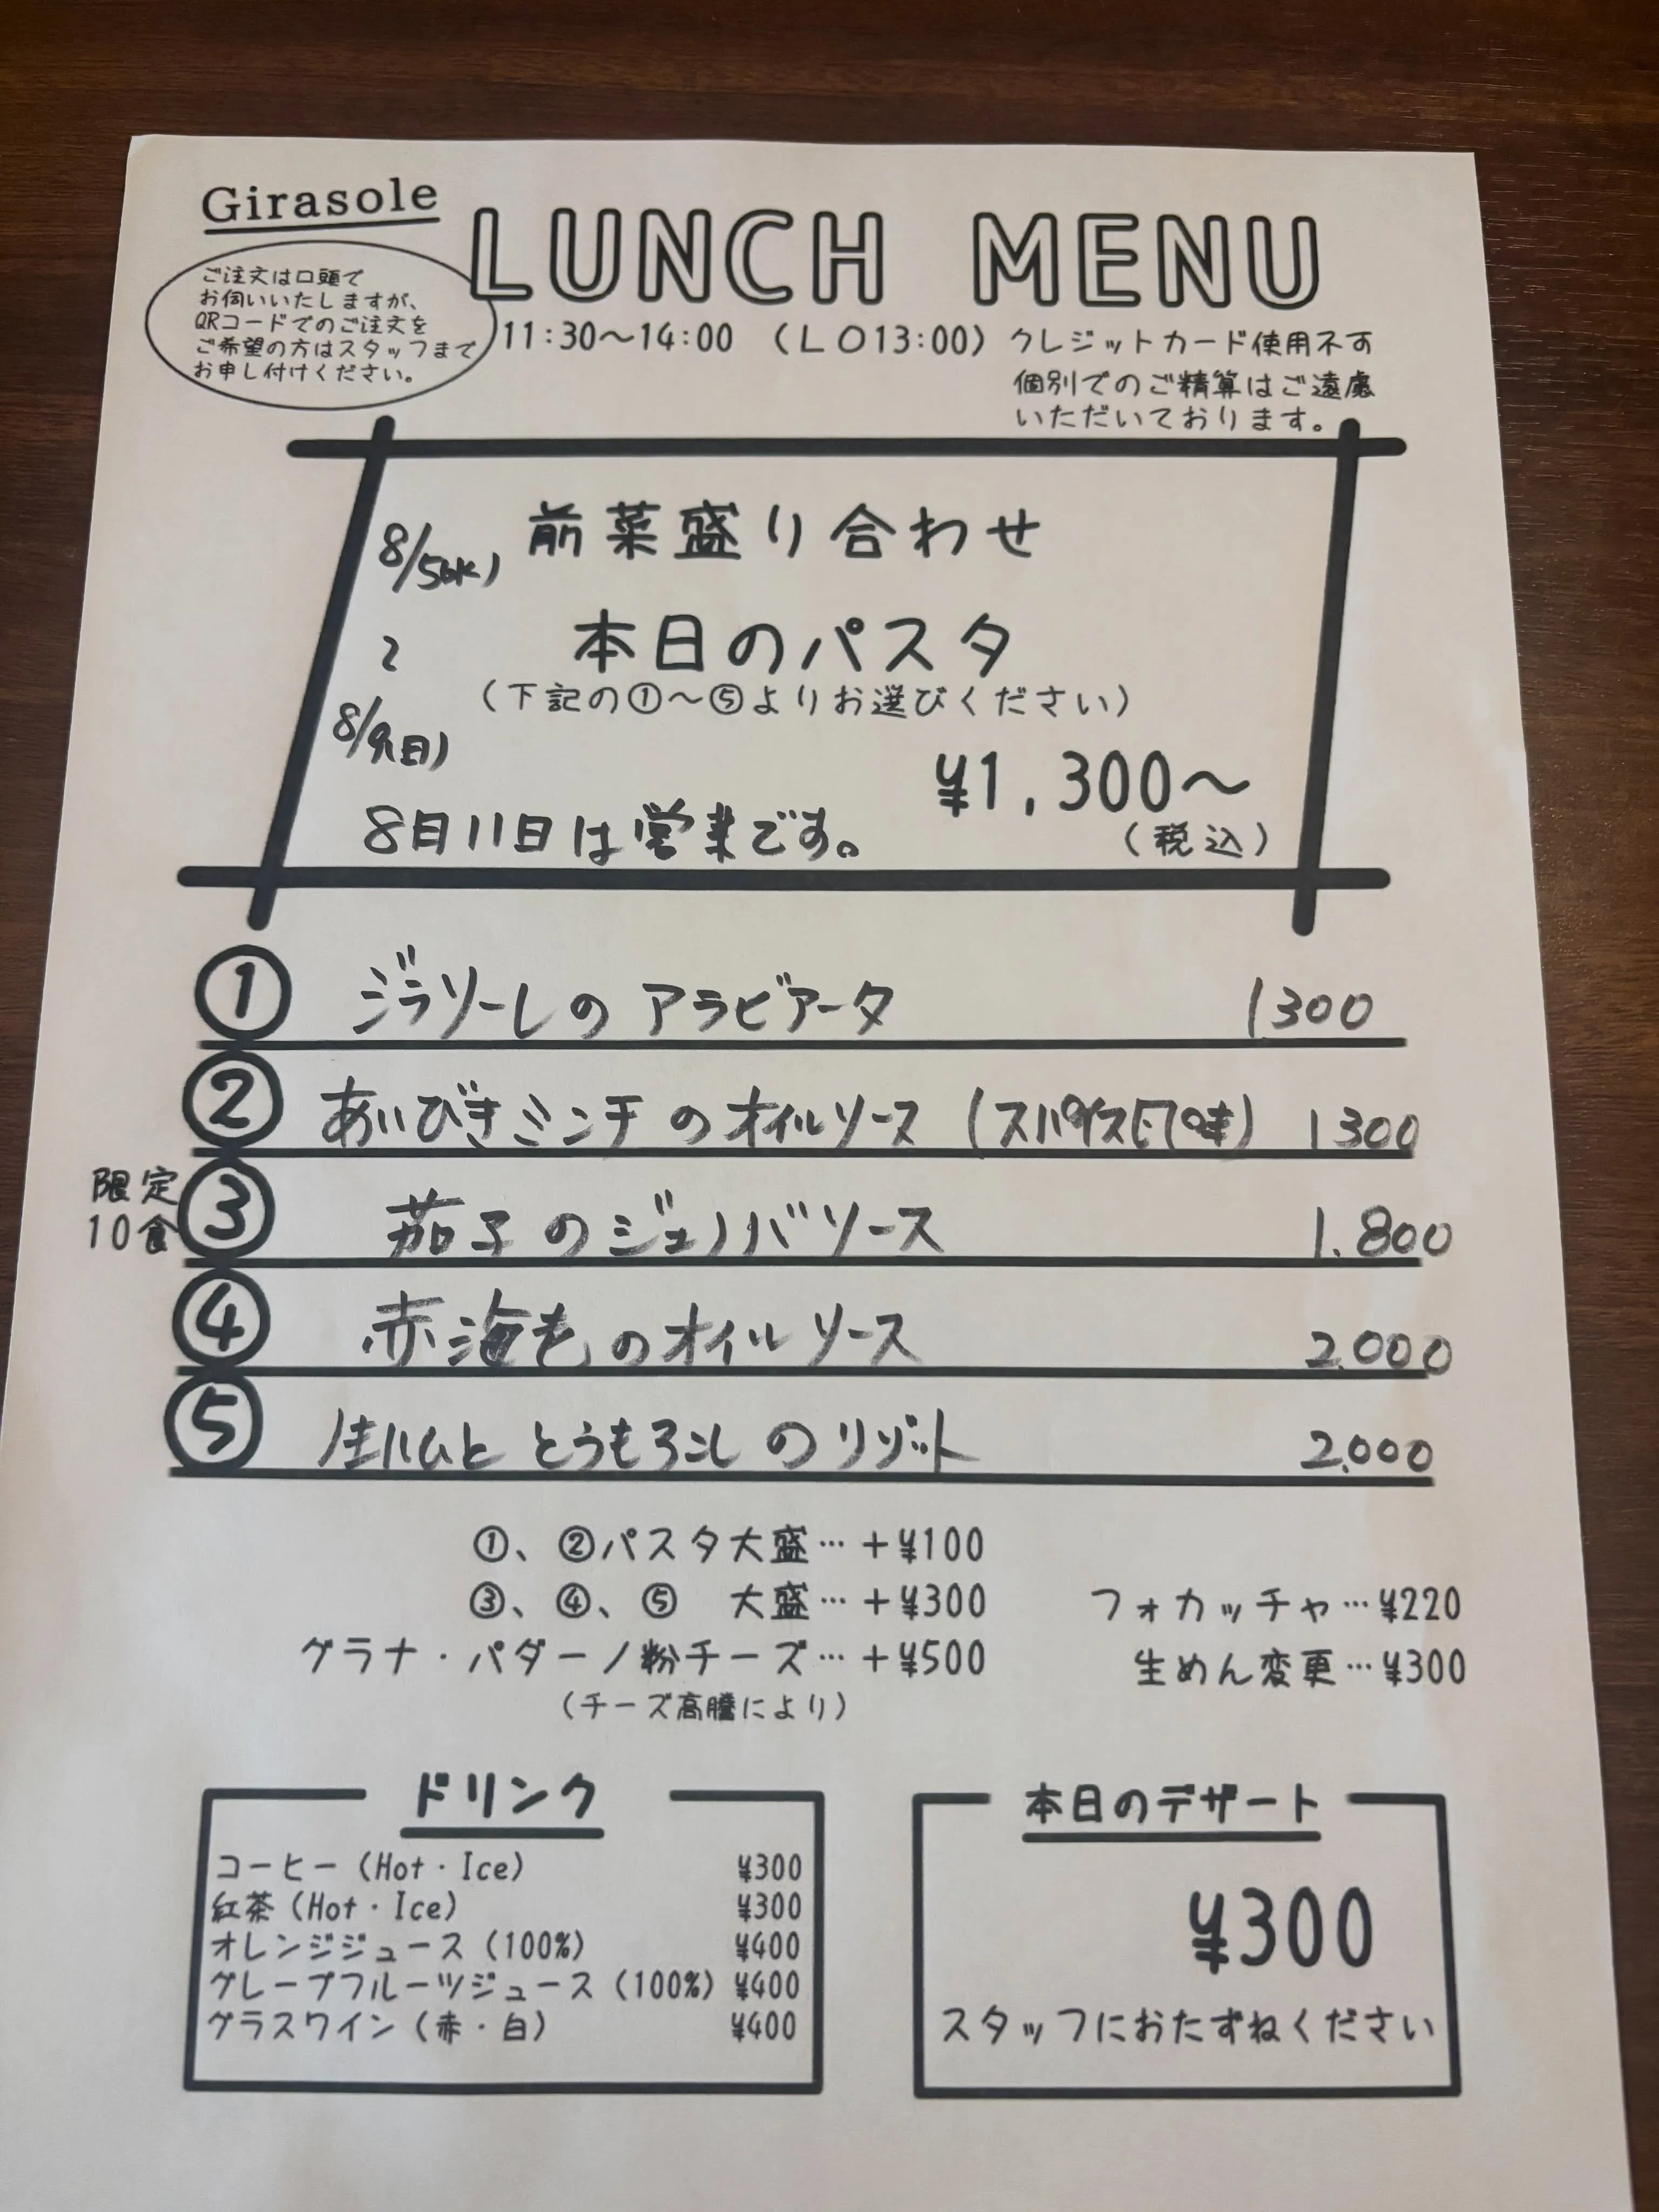 Girasole
LUNCH MENU
ご注文は口頭で
お伺いいたしますが、
QRコードでのご注文を
ご希望の方はスタッフまで
お申し付けください。
11:30〜14:00 （LO13:00）
クレジットカード使用不可
個別でのご精算はご遠慮
いただいております。
前菜盛り合わせ
8/5(水)
本日のパスタ
〜
（下記の①〜⑤よりお選びください）
8/9(日)
¥1,300〜
（税込）
8月11日は営業です。
① ジラソーレの アラビアータ 1300
② あいびきミンチ のオイルソース (スパイス風味) 1300
限定
10食
③ 茄子のジェノバソース 1.800
④ 赤海老のオイルソース 2.000
⑤ 生ハムと とうもろこし のリゾット 2.000
①、②パスタ大盛…＋¥100
③、④、⑤ 大盛…＋¥300
フォカッチャ…¥220
グラナ・パダーノ粉チーズ…＋¥500
生めん変更…¥300
（チーズ高騰により）
ドリンク
コーヒー（Hot・Ice） ¥300
紅茶（Hot・Ice） ¥300
オレンジジュース（100%） ¥400
グレープフルーツジュース（100%） ¥400
グラスワイン（赤・白） ¥400
本日のデザート
¥300
スタッフにおたずねください